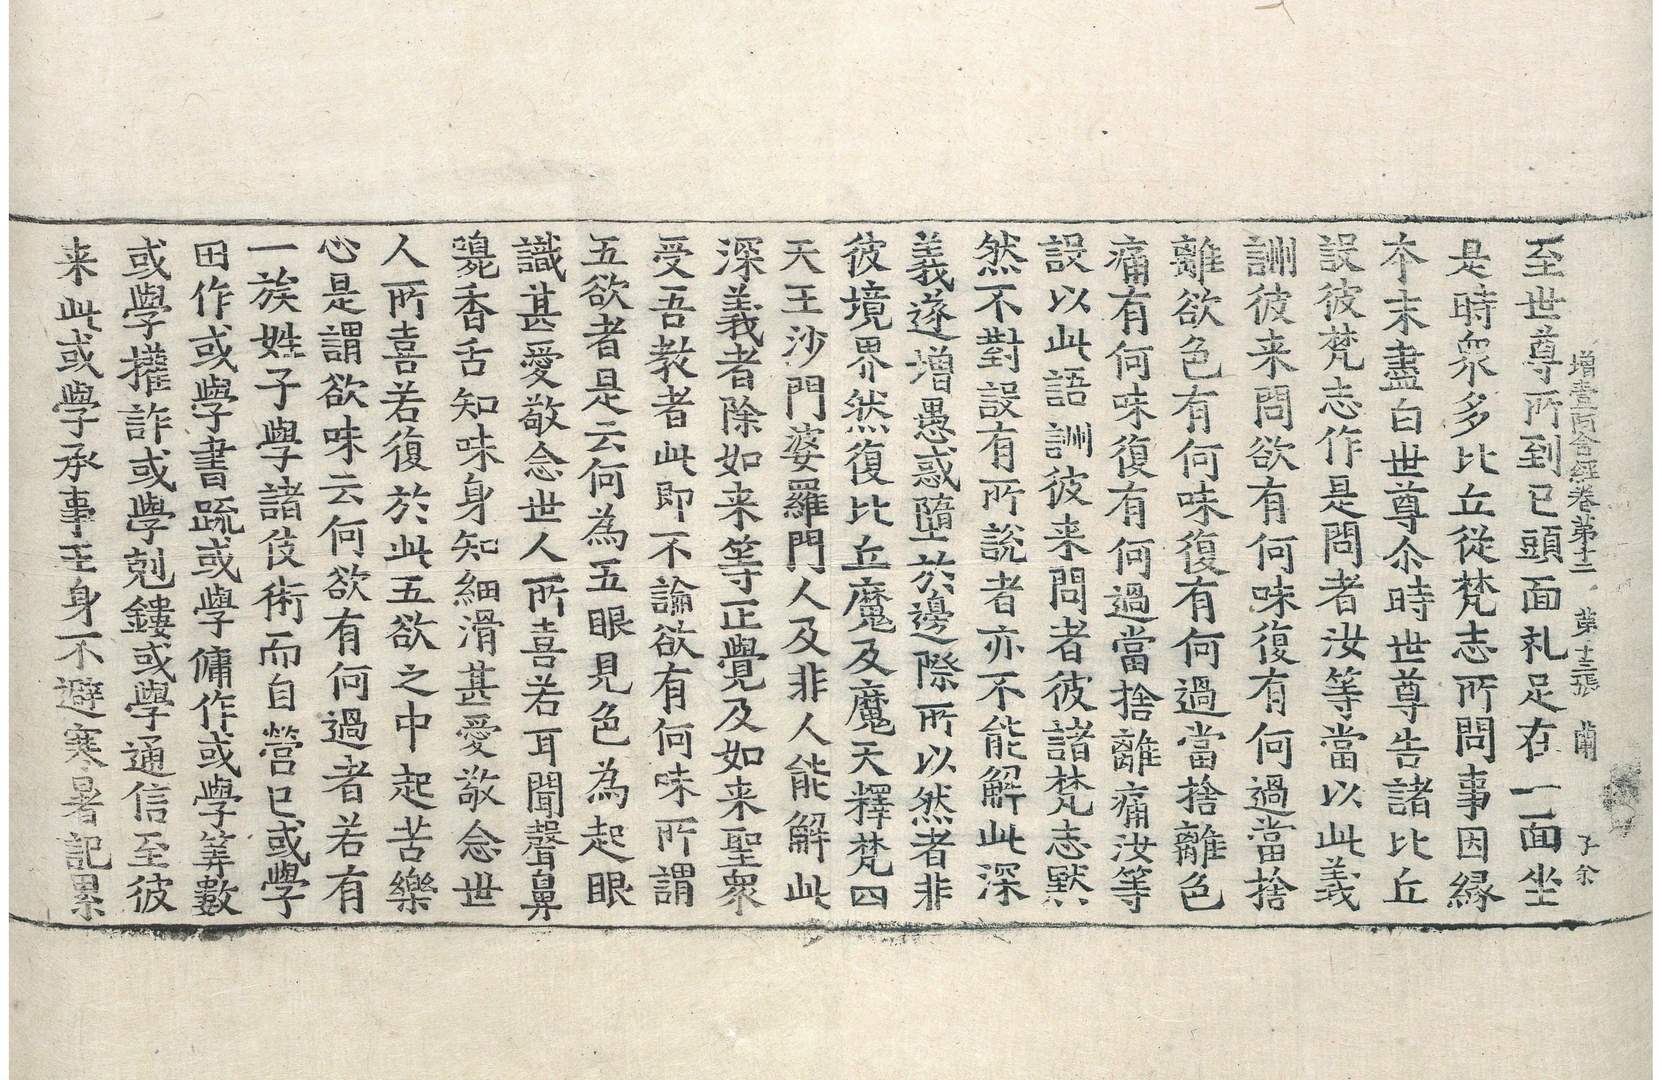 增壹阿含經卷第十二 第十三張 蘭 子余
至世尊所到已頭面礼足在一面坐
是時衆多比丘從梵志所問事因緣
本末盡白世尊尒時世尊告諸比丘
設彼梵志作是問者汝等當以此義
詶彼来問欲有何味復有何過當捨
離欲色有何味復有何過當捨離色
痛有何味復有何過當捨離痛汝等
設以此語詶彼来問者彼諸梵志默
然不對設有所說者亦不能解此深
義遂增愚惑墮於邊際所以然者非
彼境界然復比丘魔及魔天釋梵四
天王沙門婆羅門人及非人能解此
深義者除如来等正覺及如来聖衆
受吾教者此即不論欲有何味所謂
五欲者是云何為五眼見色為起眼
識甚愛敬念世人所喜若耳聞聲鼻
嗅香舌知味身知細滑甚愛敬念世
人所喜若復於此五欲之中起苦樂
心是謂欲味云何欲有何過者若有
一族姓子學諸伎術而自營已或學
田作或學書疏或學傭作或學筭數
或學權詐或學剋鏤或學通信至彼
来此或學承事王身不避寒暑記累